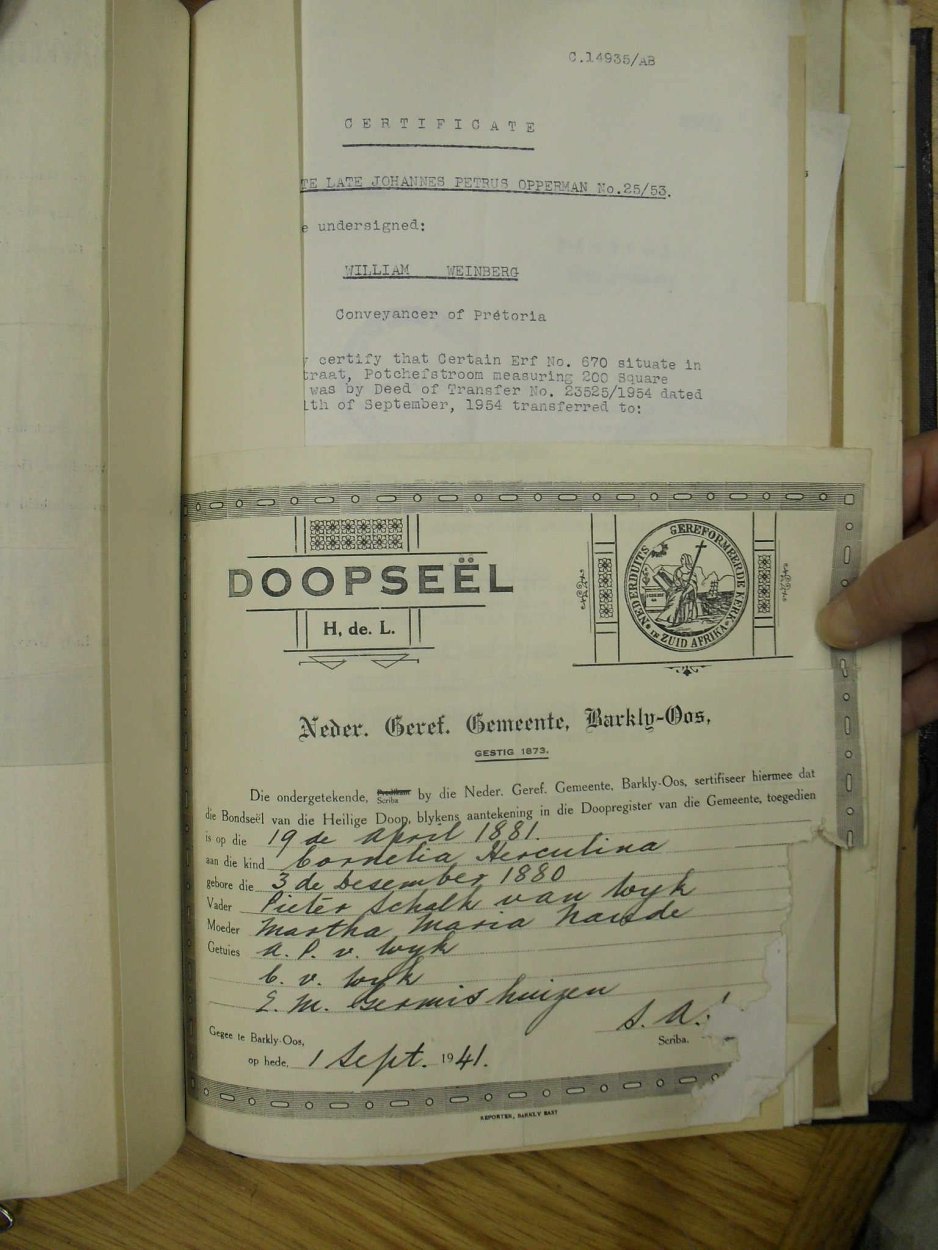 C.14935/AB
CERTIFICATE
TE LATE JOHANNES PETRUS OPPERMAN No.25/53.
e undersigned:
WILLIAM WEINBERG
Conveyancer of Prétoria
y certify that Certain Erf No. 670 situate in
traat, Potchefstroom measuring 200 Square
was by Deed of Transfer No. 23525/1954 dated
1th of September, 1954 transferred to:
DOOPSEËL
H. de. L.
NEDERDUITS GEREFORMEERDE KERK
IN ZUID AFRIKA
Neder. Geref. Gemeente, Barkly-Oos,
GESTIG 1873.
Die ondergetekende, Predikant Scriba by die Neder. Geref. Gemeente, Barkly-Oos, sertifiseer hiermee dat
die Bondseël van die Heilige Doop, blykens aantekening in die Doopregister van die Gemeente, toegedien
is op die 19 de April 1881.
aan die kind Cornelia Herculina
gebore die 3 de Desember 1880
Vader Pieter Schalk van Wyk
Moeder Martha Maria Naude
Getuies A. P. v. Wyk
C. v. Wyk
E. M. Germishuizen
S. A.
Scriba.
Gegee te Barkly-Oos,
op hede, 1 Sept. 1941.
REPORTER, BARKLY EAST